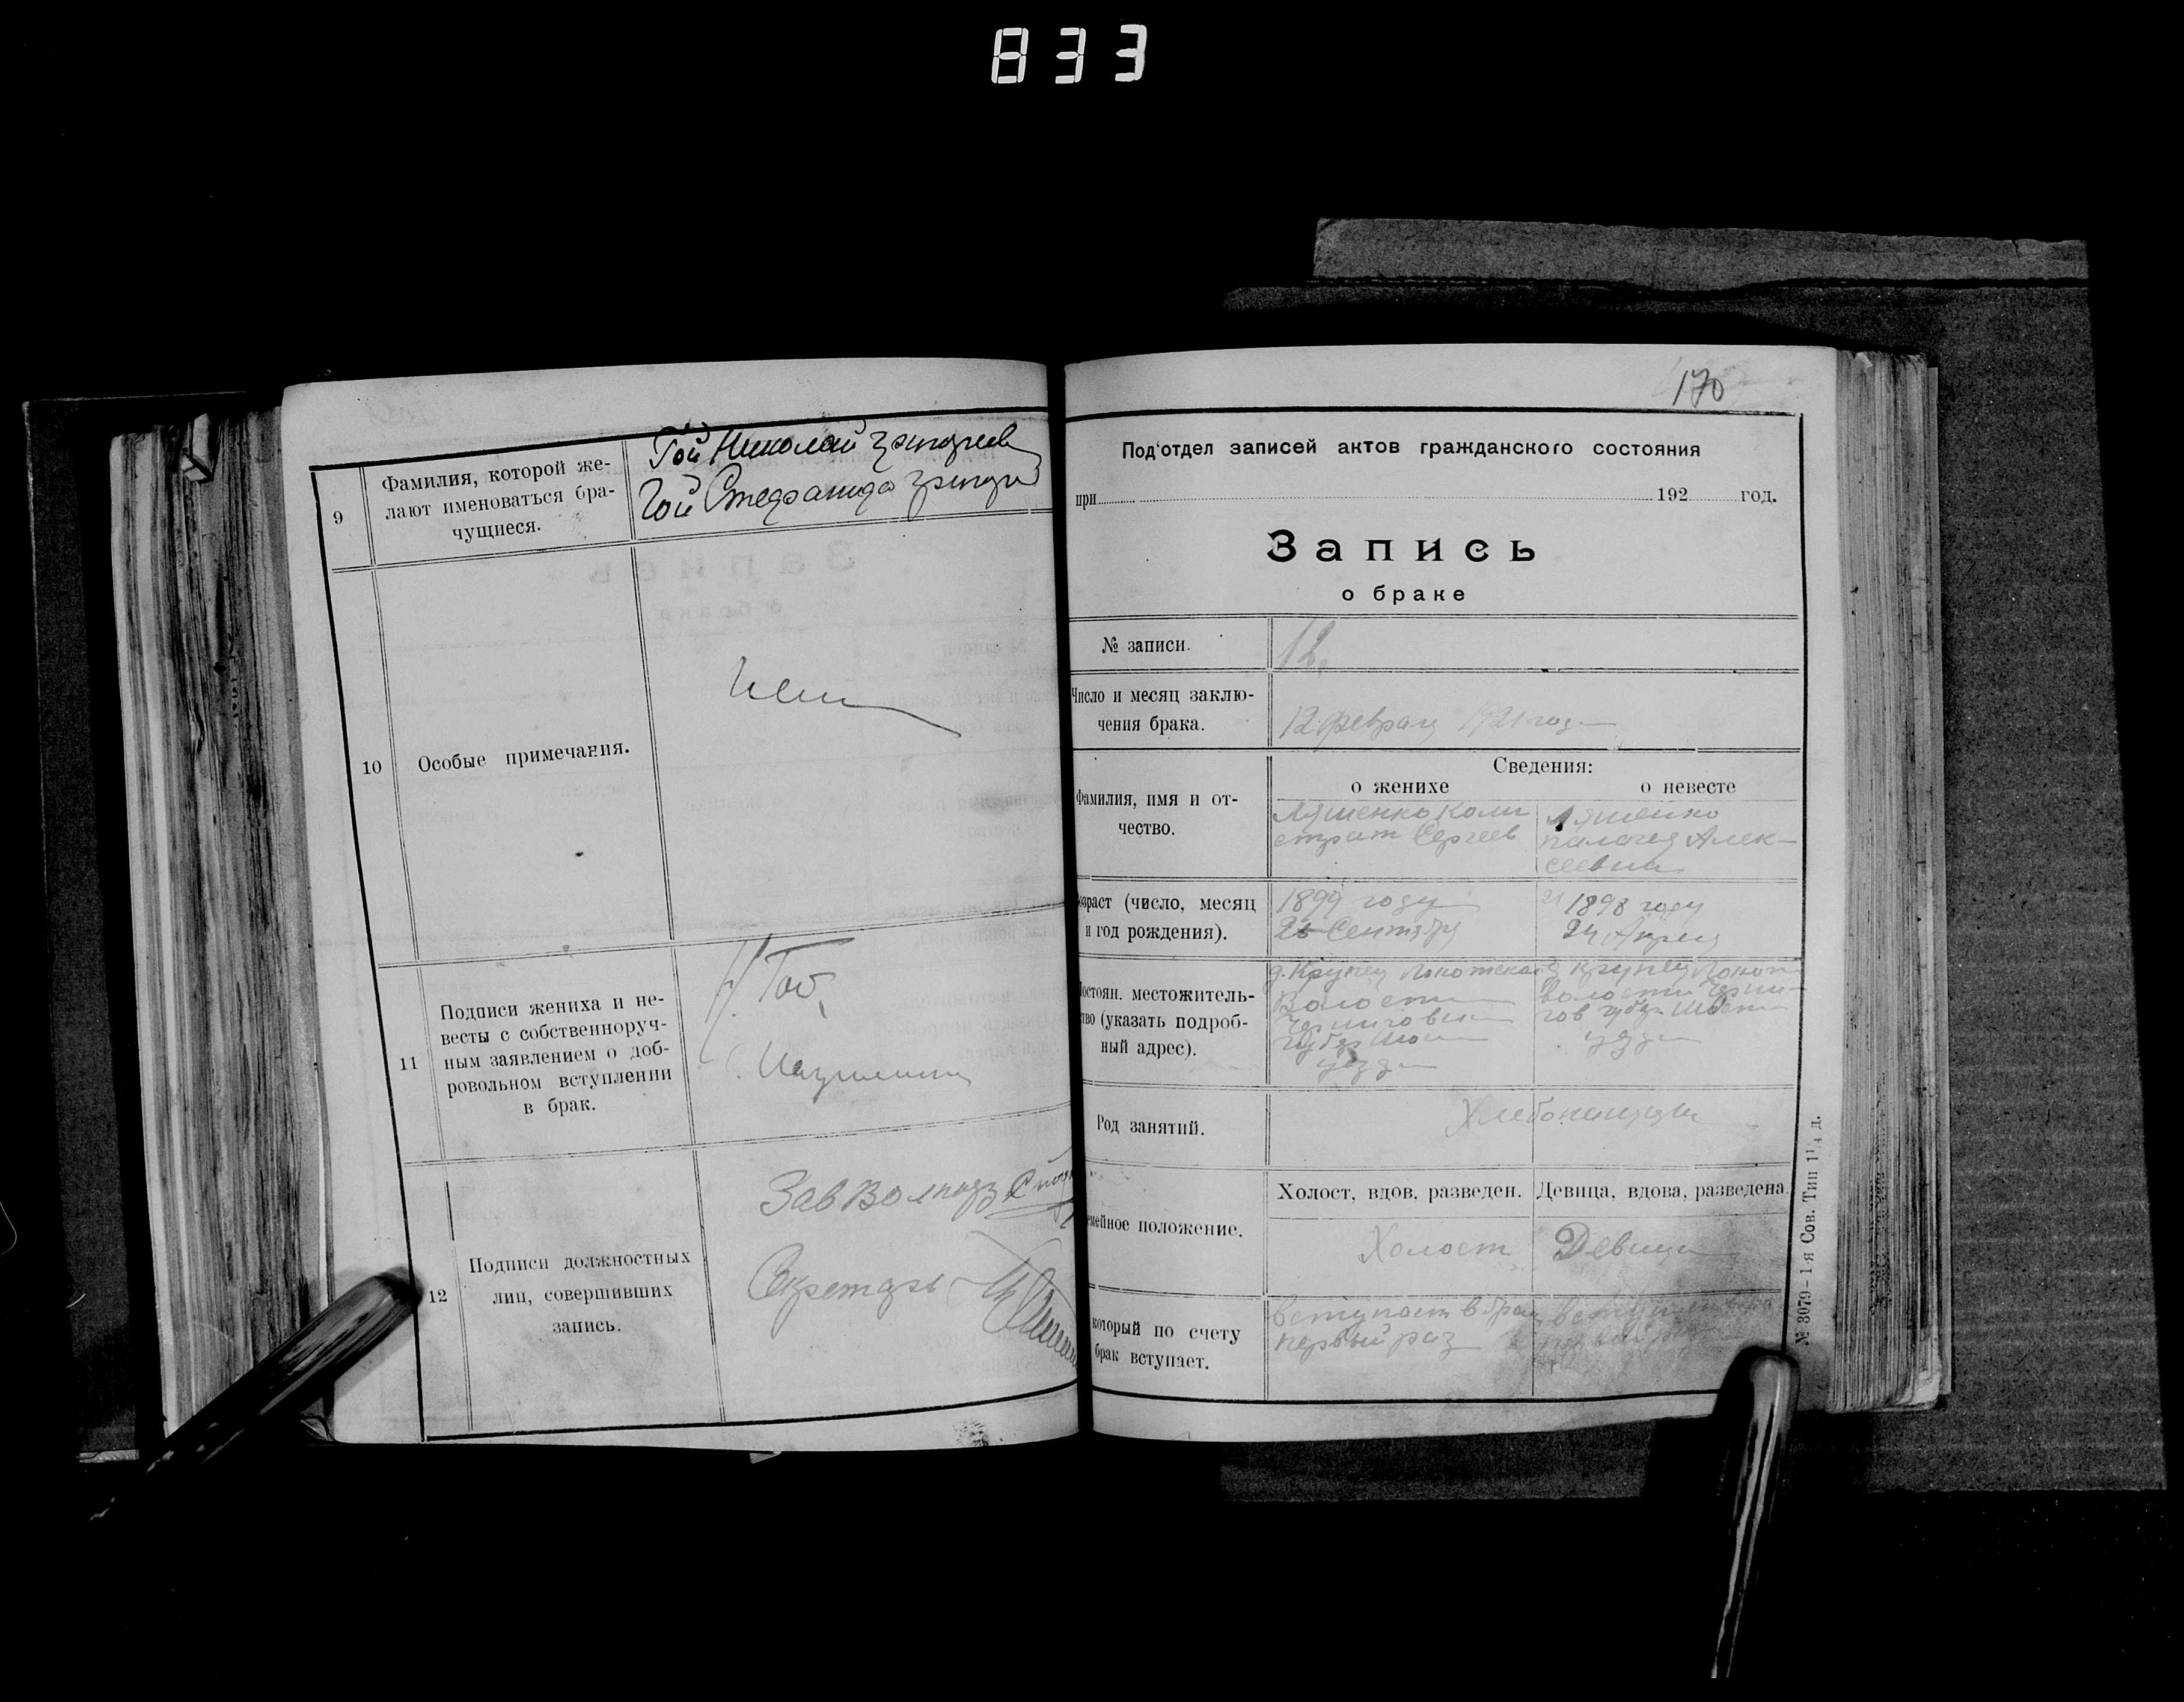 833
9
Фамилия, которой же-
лают именоваться бра-
чущиеся.
Гой Николай
Гой Стефанида
10
Особые примечания.
11
Подписи жениха и не-
весты с собственноруч-
ным заявлением о доб-
ровольном вступлении
в брак.
Гой
12
Подписи должностных
лиц, совершивших
запись.
Зав
Секретарь
170
Под'отдел записей актов гражданского состояния
при 192 год.
Запись
о браке
№ записи.
12.
Число и месяц заклю-
чения брака.
12 февраля 1921 года
Сведения:
о женихе о невесте
Фамилия, имя и от-
чество.
Ляшенко Кали
страт Сергеев
Ляшенко
Алек-
сеевна
зраст (число, месяц
и год рождения).
1899 году
Сентября
21 1898 году
24 Апреля
остоян. местожитель-
тво (указать подроб-
ный адрес).
д. Крупец Локотской
Волости
Черниговской
уезда
Крупец Локот
волости Черни-
гов губер.
уезда
Род занятий.
Хлебопашцы
мейное положение.
Холост, вдов, разведен. Девица, вдова, разведена.
Холост Девица
который по счету
брак вступает.
вступает в брак
первый раз
№ 3079 - 1-я Сов. Тип 1¼ д.